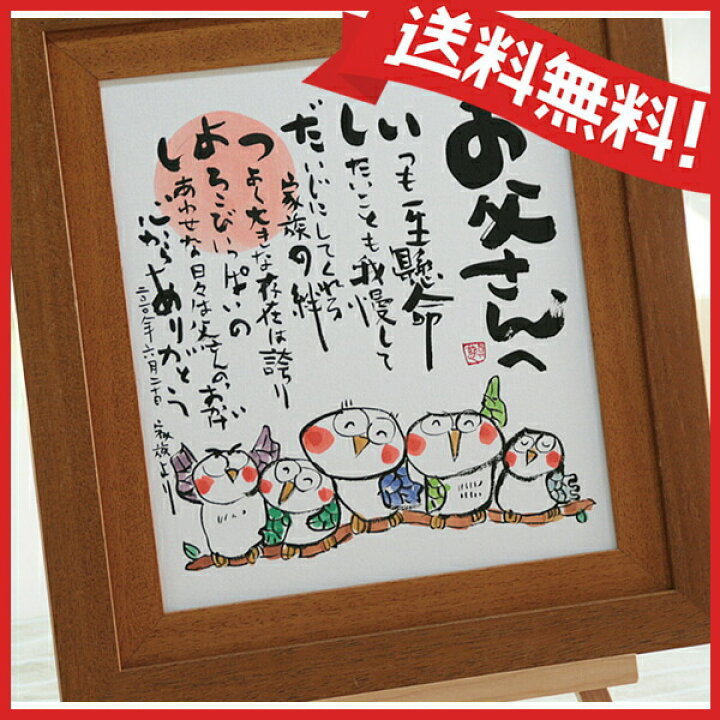 送料無料!
お父さんへ
いつも一生懸命
したいことも我慢して
だいじにしてくれる
家族の絆
つよく大きな存在は誇り
よろこびいっぱいの
しあわせな日々は父さんのおかげ
心からありがとう
二〇一〇年六月二十日 家族より